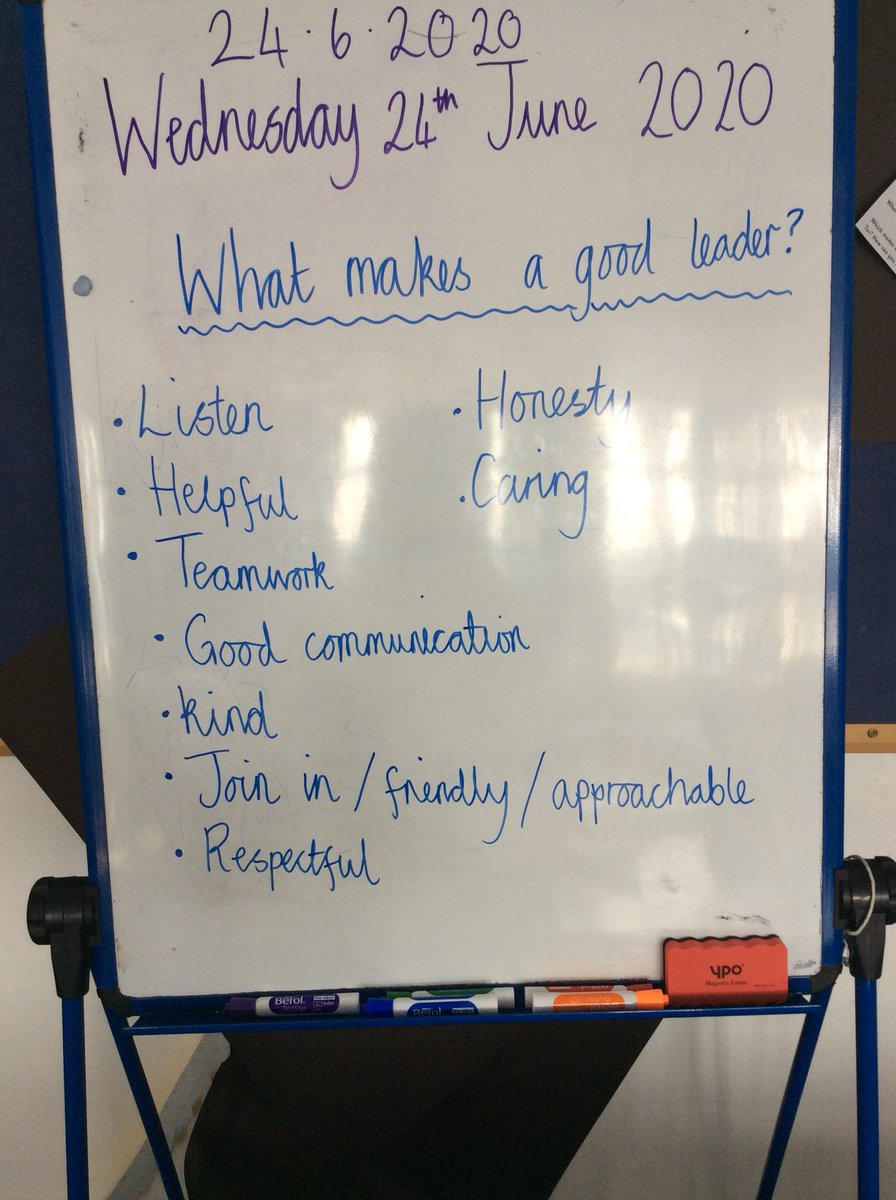 24.6.2020
Wednesday 24th June 2020
What makes a good leader?
• Listen
• Helpful
• Teamwork
• Good communication
• kind
• Join in / friendly / approachable
• Respectful
• Honesty
• Caring
YPO
Magnetic Eraser
Berol
Berol